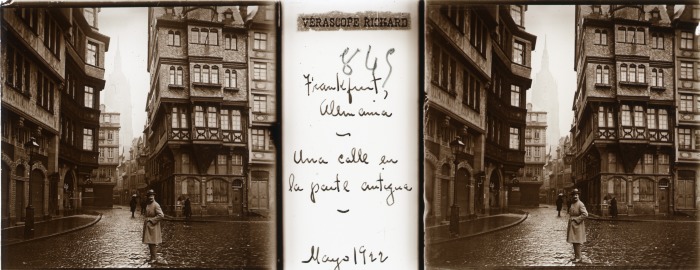 VÉRASCOPE RICHARD
845
Frankfurt,
Alemania
Una calle en
la parte antigua
Mayo 1922